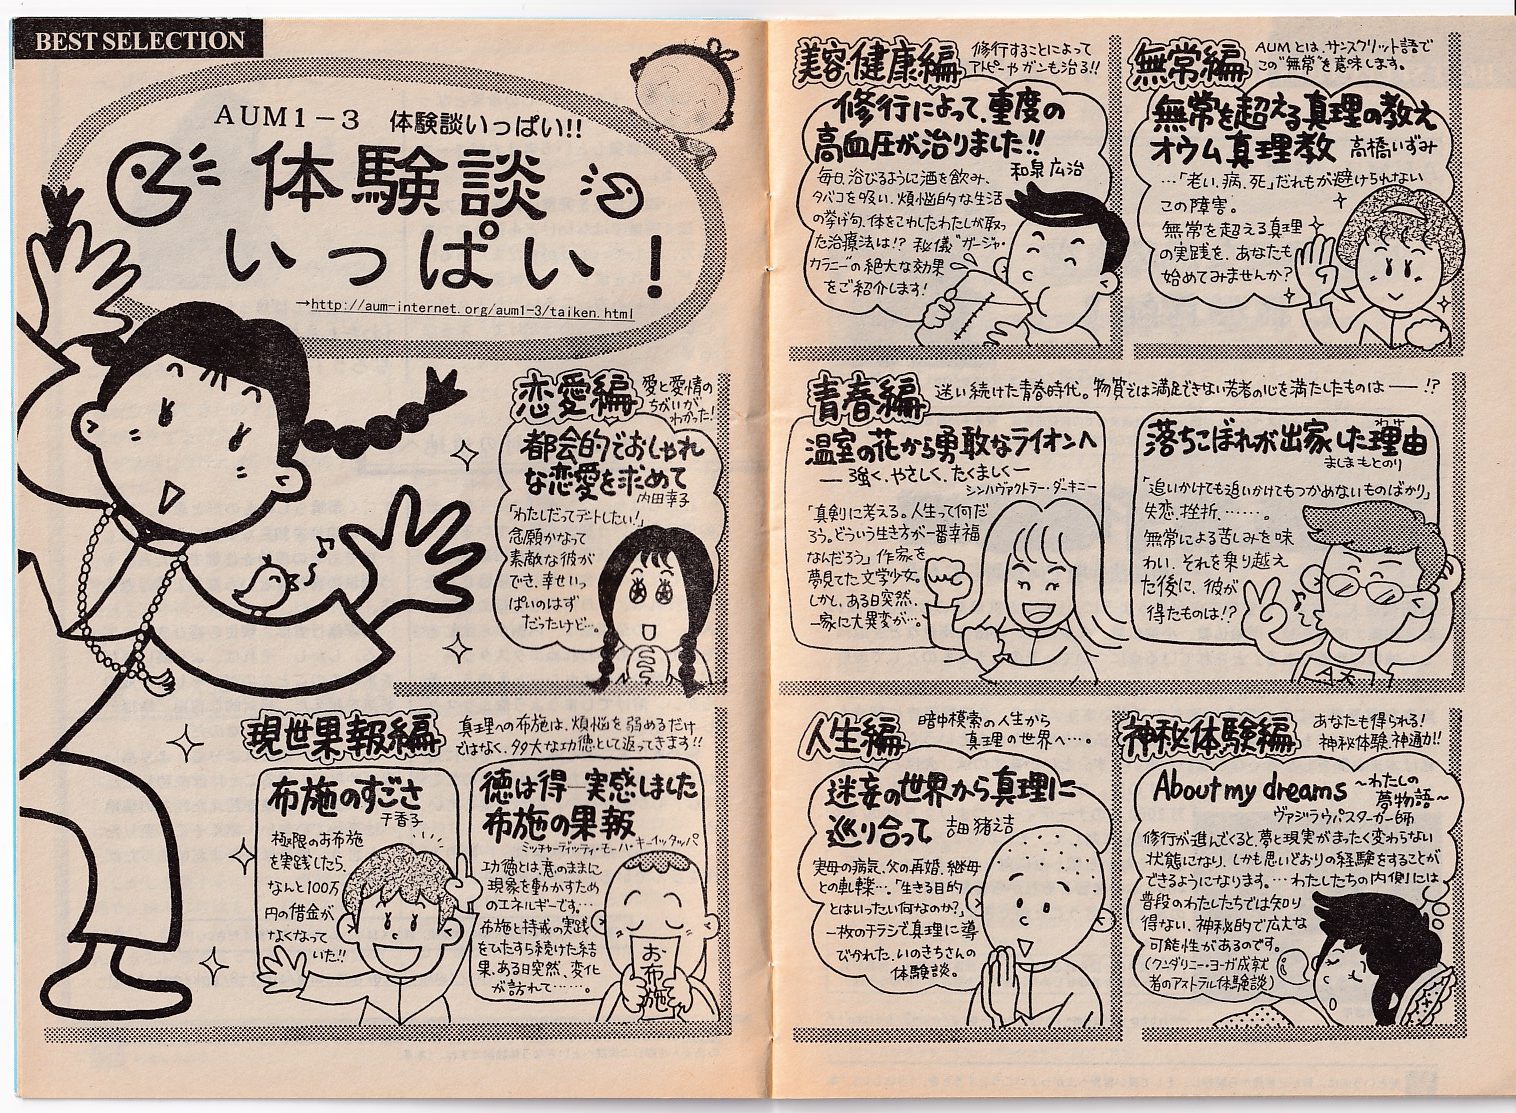 BEST SELECTION
AUM1-3 体験談いっぱい!!
体験談
いっぱい!
→http://aum-internet.org/aum1-3/taiken.html
恋愛編
愛と愛情の
ちがいが
わかった!
都会的でおしゃれ
な恋愛を求めて
内田幸子
「わたしだってデートしたい!」
念願かなって
素敵な彼が
でき、幸せいっ
ぱいのはず
だったけど…。
現世果報編
真理への布施は、煩悩を弱めるだけ
ではなく、多大な功徳として返ってきます!!
布施のすごさ
千香子
極限のお布施
を実践したら、
なんと100万
円の借金が
なくなって
いた!!
徳は得―実感しました
布施の果報
ミッチャーディッティ・モーハ・キーイッタッパ
功徳とは、意のままに
現象を動かすため
のエネルギーです…
布施と持戒の実践
をひたすら続けた結
果、ある日突然、変化
が訪れて……。
お布施
美容健康編
修行することによって
アトピーやガンも治る!!
修行によって、重度の
高血圧が治りました!!
和泉広治
毎日、浴びるように酒を飲み、
タバコを吸い、煩悩的な生活
の挙げ句、体をこわしたわたしが取っ
た治療法は!? 秘儀“ガージャ・
カラニー”の絶大な効果
をご紹介します!
無常編
AUMとは、サンスクリット語で
この“無常”を意味します。
無常を超える真理の教え
オウム真理教 高橋いずみ
…「老い、病、死」だれもが避けられない
この障害。
無常を超える真理
の実践を、あなたも
始めてみませんか?
青春編
迷い続けた青春時代。物質では満足できない若者の心を満たしたものは――!?
温室の花から勇敢なライオンへ
―強く、やさしく、たくましく―
シンハヴァクトラー・ダーキニー
「真剣に考える。人生って何だ
ろう。どういう生き方が一番幸福
なんだろう」作家を
夢見てた文学少女。
しかし、ある日突然、
一家に大異変が…。
落ちこぼれが出家した理由
わけ
ましまもとのり
「追いかけても追いかけてもつかめないものばかり」
失恋、挫折、……。
無常による苦しみを味
わい、それを乗り越え
た後に、彼が
得たものは!?
人生編
暗中模索の人生から
真理の世界へ…。
迷妄の世界から真理に
巡り合って
吉田猪之吉
実母の病気、父の再婚、継母
との軋轢…。「生きる目的
とはいったい何なのか?」
一枚のチラシで真理に導
びかれた、いのきちさんの
体験談。
神秘体験編
あなたも得られる!
神秘体験、神通力!!
About my dreams ～わたしの
夢物語～
ヴァジラウパスターガー師
修行が進んでくると、夢と現実がまったく変わらない
状態になり、しかも思いどおりの経験をすることが
できるようになります。…わたしたちの内側には
普段のわたしたちでは知り
得ない、神秘的で広大な
可能性があるのです。
(クンダリニー・ヨーガ成就
者のアストラル体験談)